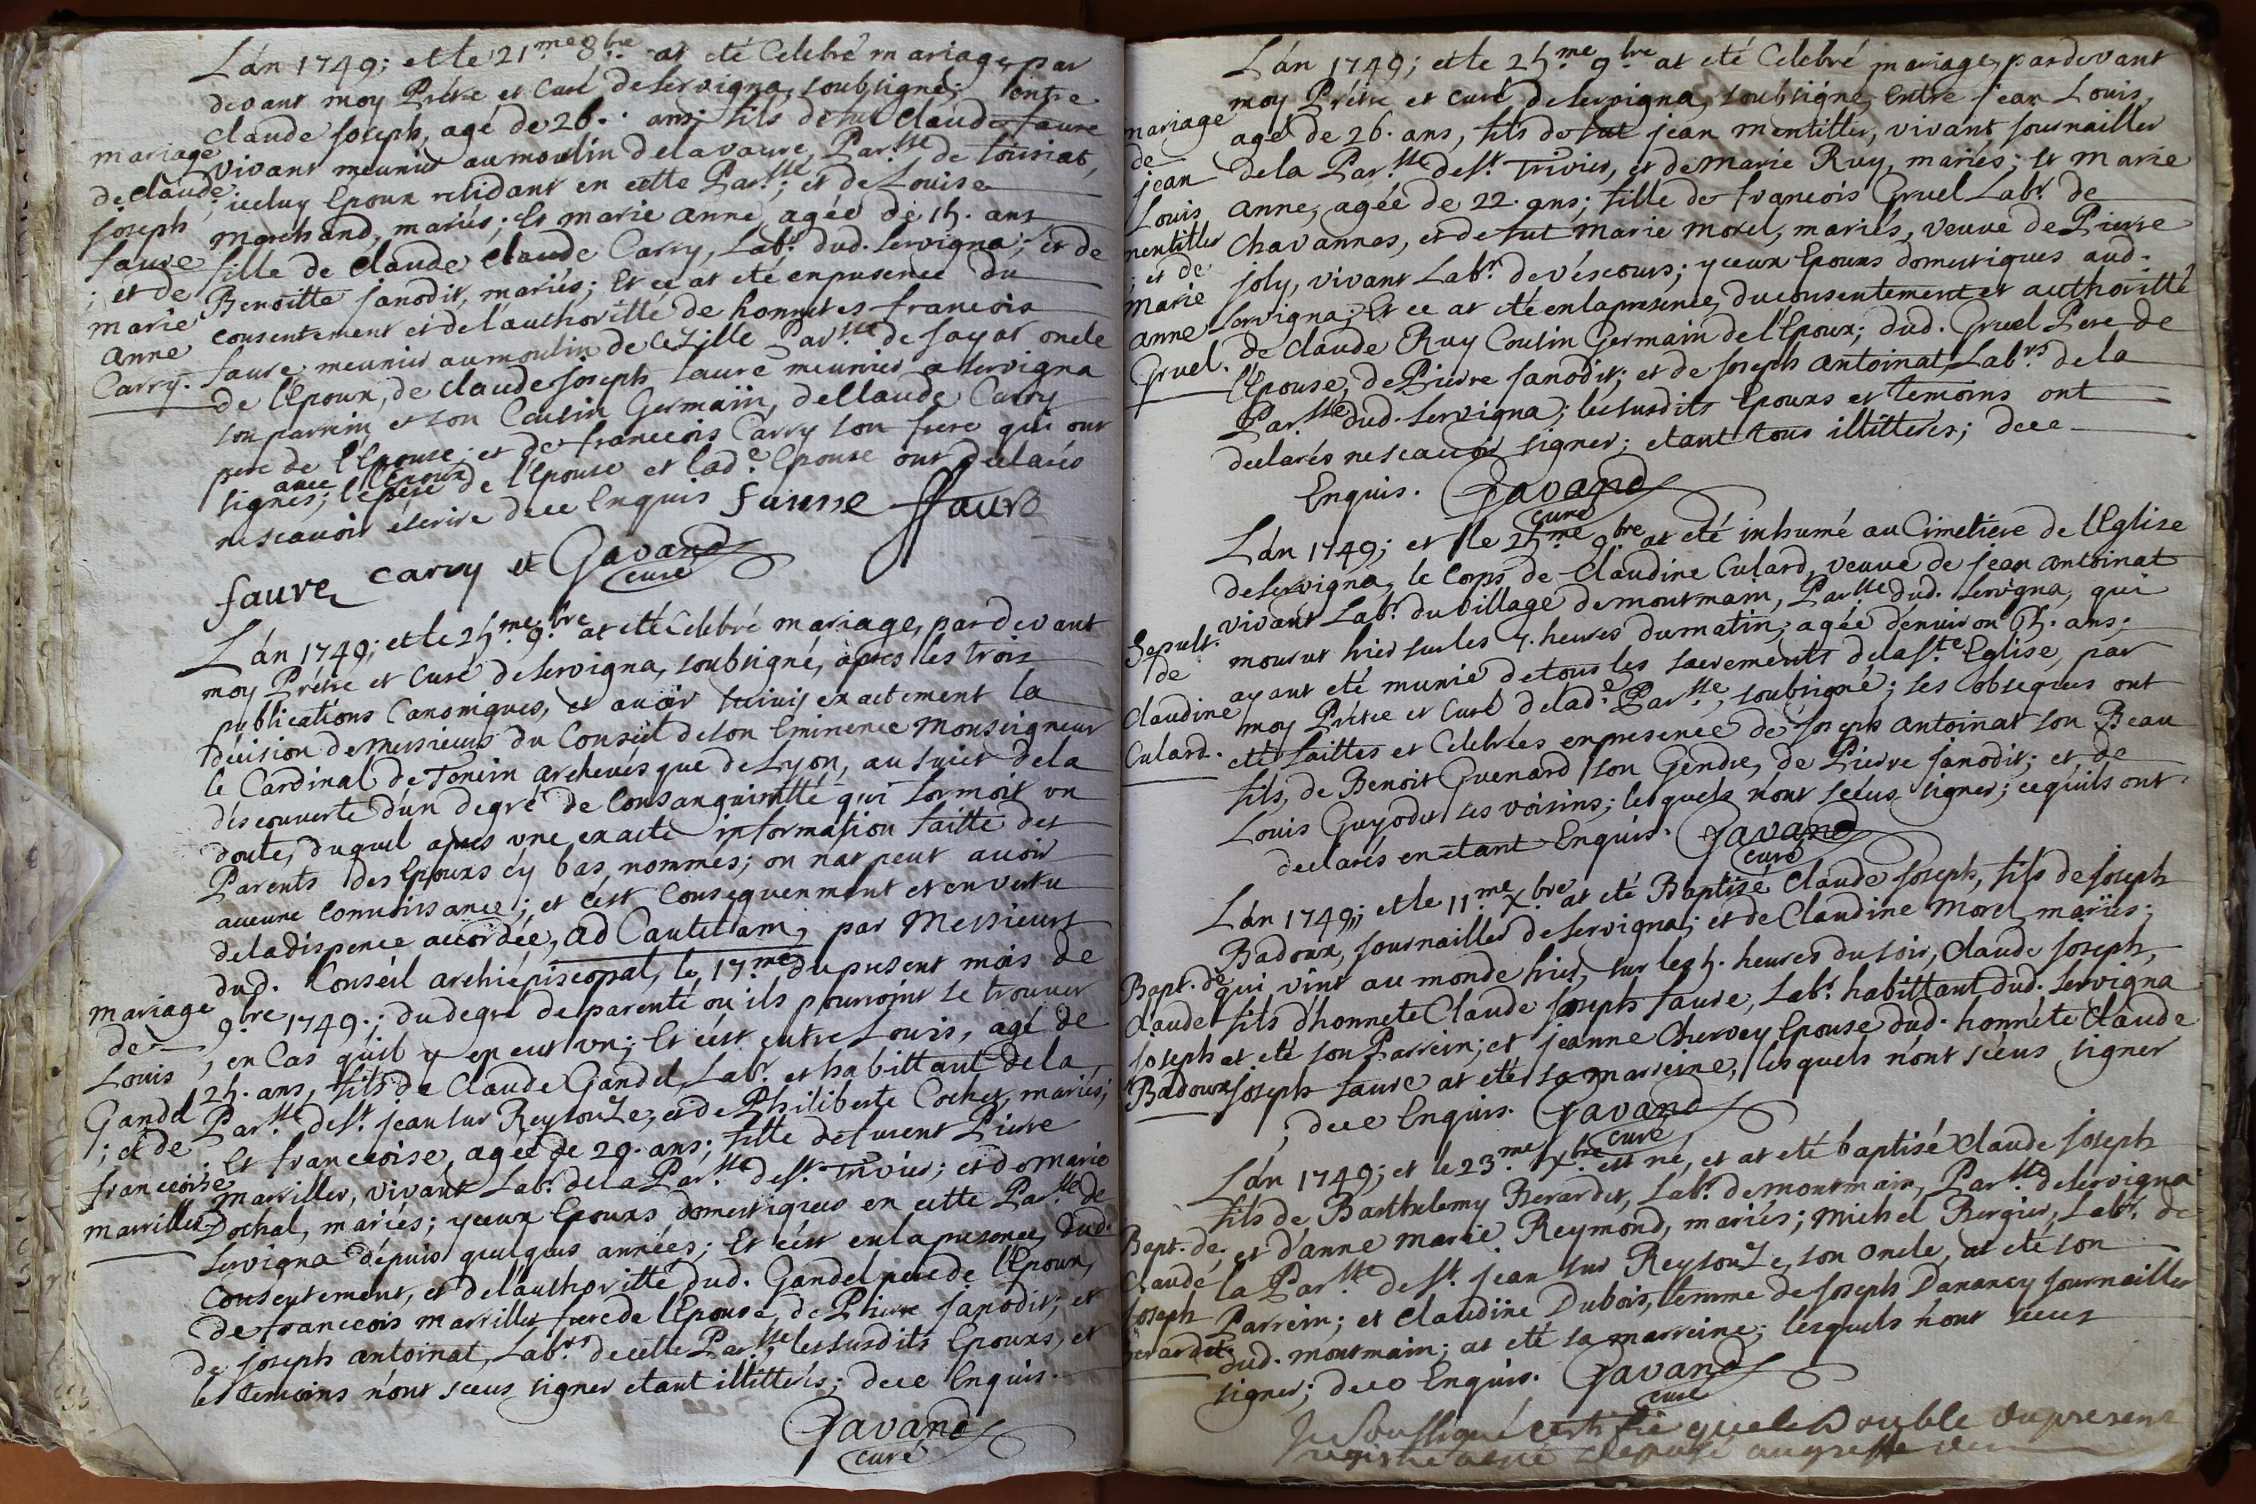 L'an 1749; et le 21.me 8.bre at eté Celebré mariage, par
devant moy Prétre et Curé de Servigna, soubsigné; entre
Claude Joseph, agé de 26. ans; fils de fut Claude faure
vivant meunier au moulin de lavaure, Par.sse de Toisiat,
; iceluy Epoux residant en cette Par.sse; et de Louise
Marchand, mariés; Et marie anne, agée de 15. ans
fille de Claude Claude Carry, Lab.r dud. Servigna; et de
Benoitte Janodit, mariés; Et ce at eté en presence du
consentement et de l'authoritté de honnetes francois
faure meunier au moulin de Cezille Par.sse de Jayat oncle
de l'Epoux, de Claude Joseph faure meunier a Servigna
son parrein et son Cousin Germain, de Claude Carry
pere de l'Epouse; et de francois Carry son frere qui ont
signés; avec l'Epoux
le pere de l'Epouse et lad.e Epouse ont declarés
ne scavoir écrire de ce Enquis faure ffaure
faure carry et Gavand
curé
mariage
de Claude
Joseph
faure
; et de
marie
anne
Carry.
L'an 1749; et le 25.me 9.bre at eté Celebré mariage, par devant
moy Prétre et Curé de Servigna, soubsigné, apres les trois
publications Canoniques, et avoir suiuis exactement la
décision de Messieurs du Conseil de son Eminence Monseigneur
le Cardinal de Tencin archevesque de Lyon, au sujet de la
découverte d'un degré de Consanguinitté qui formoit un
doute, duquel apres une exacte information faitte des
Parents des Epoux cy bas nommés; on n'at peut avoir
aucune connoissance; et c'est Consequenment et en vertu
de la dispence accordée, ad Cautelam, par Messieurs
dud. Conseil archiépiscopal, le 17.me du present mois de
9.bre 1749.; du degré de parenté ou ils pourroint se trouver
, en Cas qu'il y en eut un; Et c'est entre Louis, agé de
25. ans, fils de Claude Gandel, Lab.r et habittant de la
Par.sse de S.t Jean sur Reyssouze, et de Philiberte Cochet, mariés;
Et francoise, agée de 29. ans; fille de furent Pierre
Marviller, vivant Lab.r de la Par.sse de S.t Trivier; et de marie
Dochal, mariés; yceux Epoux domestiques en cette Par.sse de
Servigna dépuis quelques années; Et c'est en la presence, dud.
Consentement, et de l'authoritté dud. Gandel pere de l'Epoux,
de francois Marviller frere de l'Epouse, de Pierre Janodit; et
de Joseph antoinat, Lab.rs de cette Par.sse; les susdits Epoux, et
les temoins n'ont sceus signer etant illitterés; de ce Enquis.
Gavand
curé
mariage
de
Louis
Gandel
; et de
francoise
marviller
L'an 1749; et le 25.me 9.bre at eté Celebré mariage, par devant
moy Prétre et curé de Servigna, soubsigné, Entre Jean Louis,
agé de 26. ans, fils de fut Jean Mentiller, vivant Journailler
de la Par.sse de S.t Trivier, et de marie Ruy, mariés; et marie
anne, agée de 22. ans; fille de francois Gruel Lab.r de
Chavannes, et de fut Marie Morel, mariés, veuve de Pierre
Joly, vivant Lab.r de Véscours; yceux Epoux domestiques aud.
Servigna; Et ce at eté en la presence, du consentement et authoritté
de Claude Ruy Cousin Germain de l'Epoux; dud. Gruel Pere de
l'Epouse, de Pierre Janodit; et de Joseph Antoinat, Lab.rs de la
Par.sse dud. Servigna; les susdits Epoux et temoins ont
declarés ne scavoir signer; etant tous illitterés; de ce
Enquis. Gavand
curé
mariage
de
Jean
Louis
mentiller
; et de
Marie
anne
Gruel.
L'an 1749; et le 25.me 9.bre at eté inhumé au Cimetiere de l'Eglise
de Servigna, le Corps de Claudine Culard, veuve de Jean antoinat
vivant Lab.r du village de montmain, Par.sse dud. Servigna, qui
mourut hier sur les 7. heures du matin; agée d'environ 65. ans;
ayant eté munie de tous les sacrements de la S.te Eglise, par
moy Prétre et Curé de lad.e Par.sse, soubsigné; ses obseques ont
eté faittes et Celebrées en presence de Joseph antoinat son Beau
fils, de Benoit Guenard son Gendre, de Pierre Janodit; et, de
Louis Guyodet ses voisins; lesquels n'ont sceus signer; ce qu'ils ont
declarés en etant Enquis. Gavand
curé
Sepult.
de
Claudine
Culard.
L'an 1749; et le 11.me X.bre at eté Baptizé Claude Joseph, fils de Joseph
Badoux, Journailler de Servigna; et de Claudine Morel, mariés;
qui vint au monde hier, sur les 5. heures du soir, Claude Joseph,
fils d'honnete Claude Joseph faure, Lab.r habittant dud. Servigna
at eté son Parrein; et Jeanne Chervey Epouse dud. honnéte Claude
Joseph faure at eté sa marreine, lesquels n'ont sceus signer
, de ce Enquis. Gavand
curé
Bapt. de
Claude
Joseph
Badoux
L'an 1749; et le 23.me X.bre est né, et at eté baptisé Claude Joseph
fils de Barthelemy Berardet, Lab.r de montmain, Par.sse de Servigna
et d'anne Marie Reymond, mariés; Michel Bergier, Lab.r de
la Par.sse de S.t Jean sur Reyssouze, son oncle, at eté son
Parrein; et Claudine Dubois, femme de Joseph Danancy Journailler
dud. montmain; at eté sa marreine; lesquels n'ont sceus
signer; de ce Enquis. Gavand
curé
Bapt. de
Claude
Joseph
Berardet
Je Soussigné certifie que le Double du present
registre a été deposé au greffe de